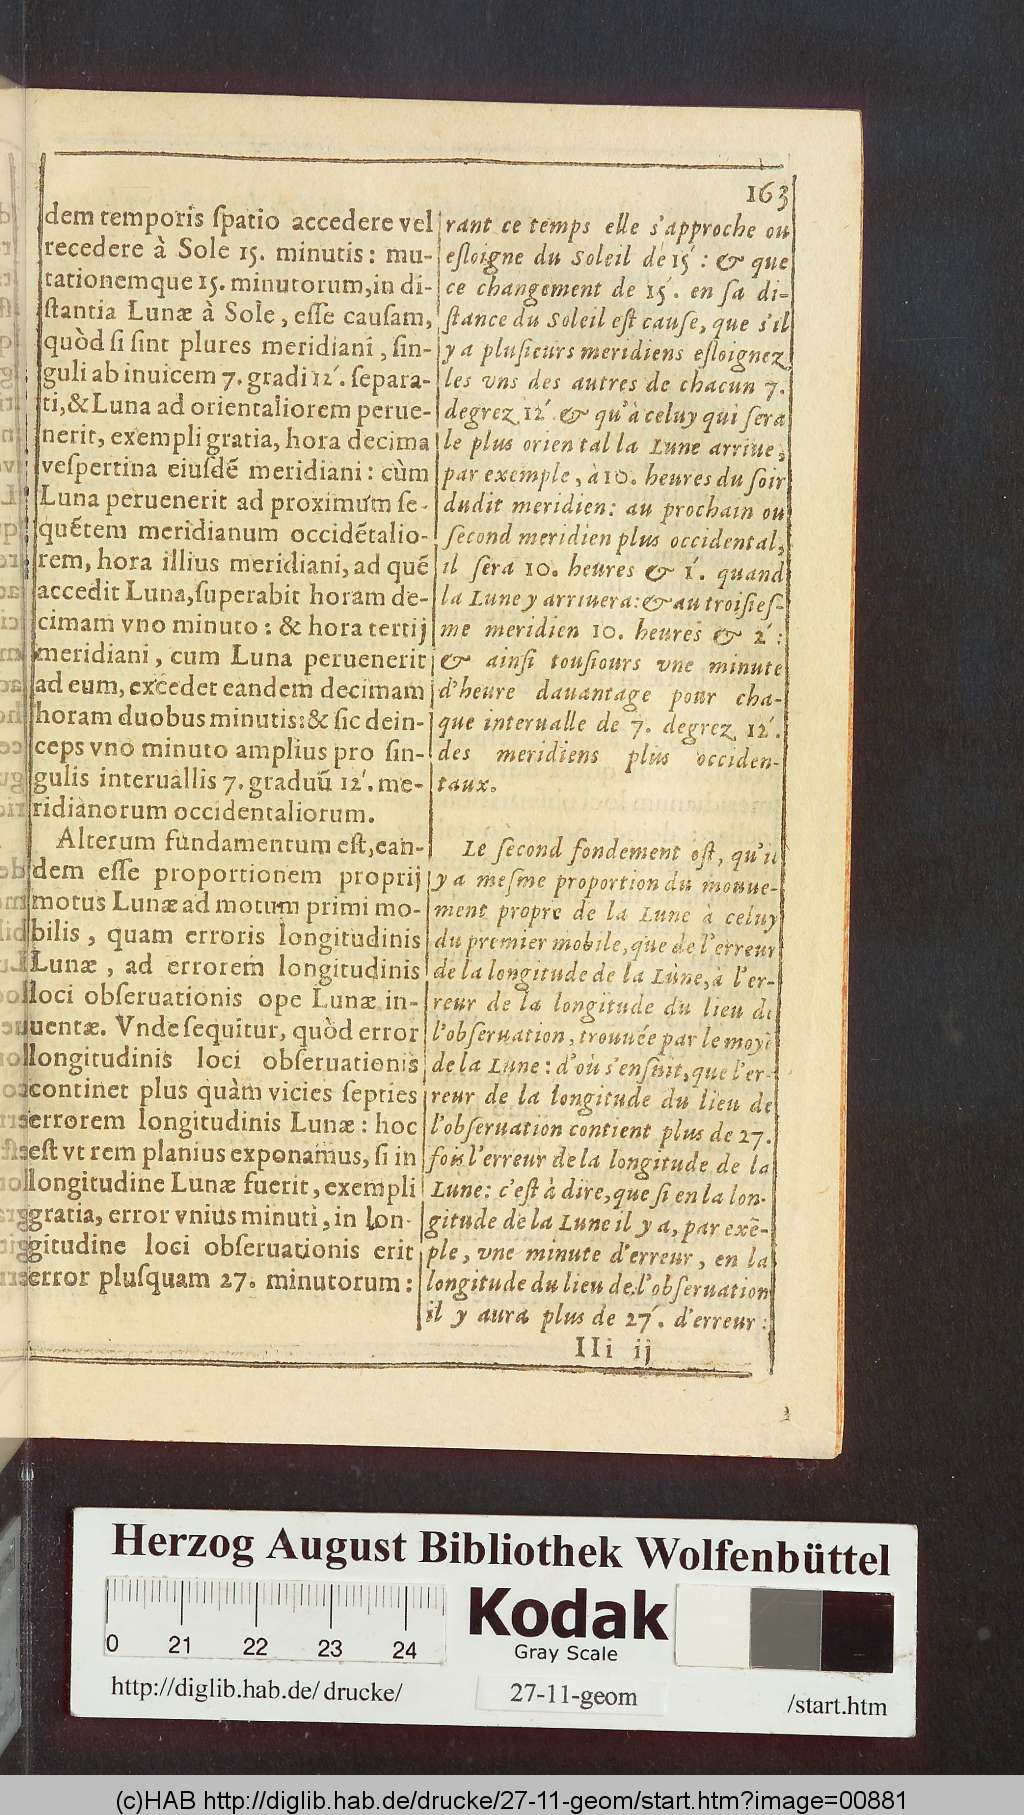 163
dem temporis ſpatio accedere vel
recedere à Sole 15. minutis: mu-
tationemque 15. minutorum, in di-
ſtantia Lunæ à Sole, eſſe cauſam,
quòd ſi ſint plures meridiani, ſin-
guli ab inuicem 7. gradi 12′. ſepara-
ti, & Luna ad orientaliorem perue-
nerit, exempli gratia, hora decima
veſpertina eiuſdẽ meridiani: cùm
Luna peruenerit ad proximum ſe-
quẽtem meridianum occidẽtalio-
rem, hora illius meridiani, ad quẽ
accedit Luna, ſuperabit horam de-
cimam vno minuto: & hora tertij
meridiani, cum Luna peruenerit
ad eum, excedet eandem decimam
horam duobus minutis: & ſic dein-
ceps vno minuto amplius pro ſin-
gulis interuallis 7. graduũ 12′. me-
ridianorum occidentaliorum.
Alterum fundamentum eſt, ean-
dem eſſe proportionem proprij
motus Lunæ ad motum primi mo-
bilis, quam erroris longitudinis
Lunæ, ad errorem longitudinis
loci obſeruationis ope Lunæ in-
uentæ. Vnde ſequitur, quòd error
longitudinis loci obſeruationis
continet plus quàm vicies ſepties
errorem longitudinis Lunæ: hoc
eſt vt rem planius exponamus, ſi in
longitudine Lunæ fuerit, exempli
gratia, error vnius minuti, in lon-
gitudine loci obſeruationis erit
error pluſquam 27. minutorum:
rant ce temps elle s'approche ou
eſloigne du Soleil de 15′: & que
ce changement de 15′. en ſa di-
ſtance du Soleil eſt cauſe, que s'il
y a pluſieurs meridiens eſloignez
les vns des autres de chacun 7.
degrez 12′ & qu'à celuy qui ſera
le plus oriental la Lune arriue,
par exemple, à 10. heures du ſoir
dudit meridien: au prochain ou
ſecond meridien plus occidental,
il ſera 10. heures & 1′. quand
la Lune y arriuera: & au troiſieſ-
me meridien 10. heures & 2′:
& ainſi touſiours vne minute
d'heure dauantage pour cha-
que interualle de 7. degrez 12′.
des meridiens plus occiden-
taux.
Le ſecond fondement eſt, qu'il
y a meſme proportion du mouue-
ment propre de la Lune à celuy
du premier mobile, que de l'erreur
de la longitude de la Lune, à l'er-
reur de la longitude du lieu de
l'obſeruation, trouuée par le moyẽ
de la Lune: d'où s'enſuit, que l'er-
reur de la longitude du lieu de
l'obſeruation contient plus de 27.
fois l'erreur de la longitude de la
Lune: c'eſt à dire, que ſi en la lon-
gitude de la Lune il y a, par exẽ-
ple, vne minute d'erreur, en la
longitude du lieu de l'obſeruation
il y aura plus de 27′. d'erreur:
IIi ij
Herzog August Bibliothek Wolfenbüttel
0 21 22 23 24
Kodak
Gray Scale
http://diglib.hab.de/drucke/
27-11-geom
/start.htm
(c)HAB http://diglib.hab.de/drucke/27-11-geom/start.htm?image=00881